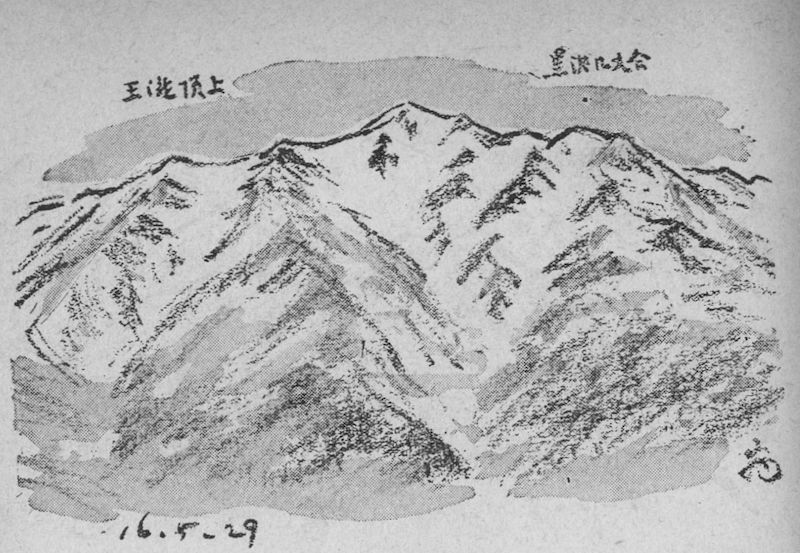 王滝頂上
黒沢口六合
16.5.29